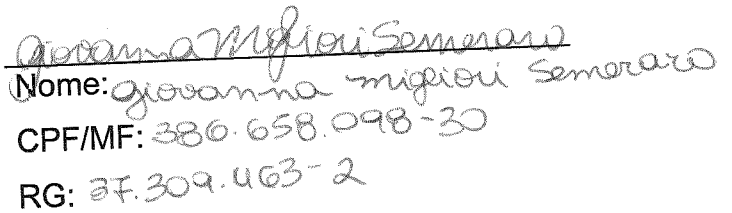 Giovanna Migliori Semeraro
Nome: Giovanna Migliori Semeraro
CPF/MF: 386.658.098-30
RG: 37.309.463-2